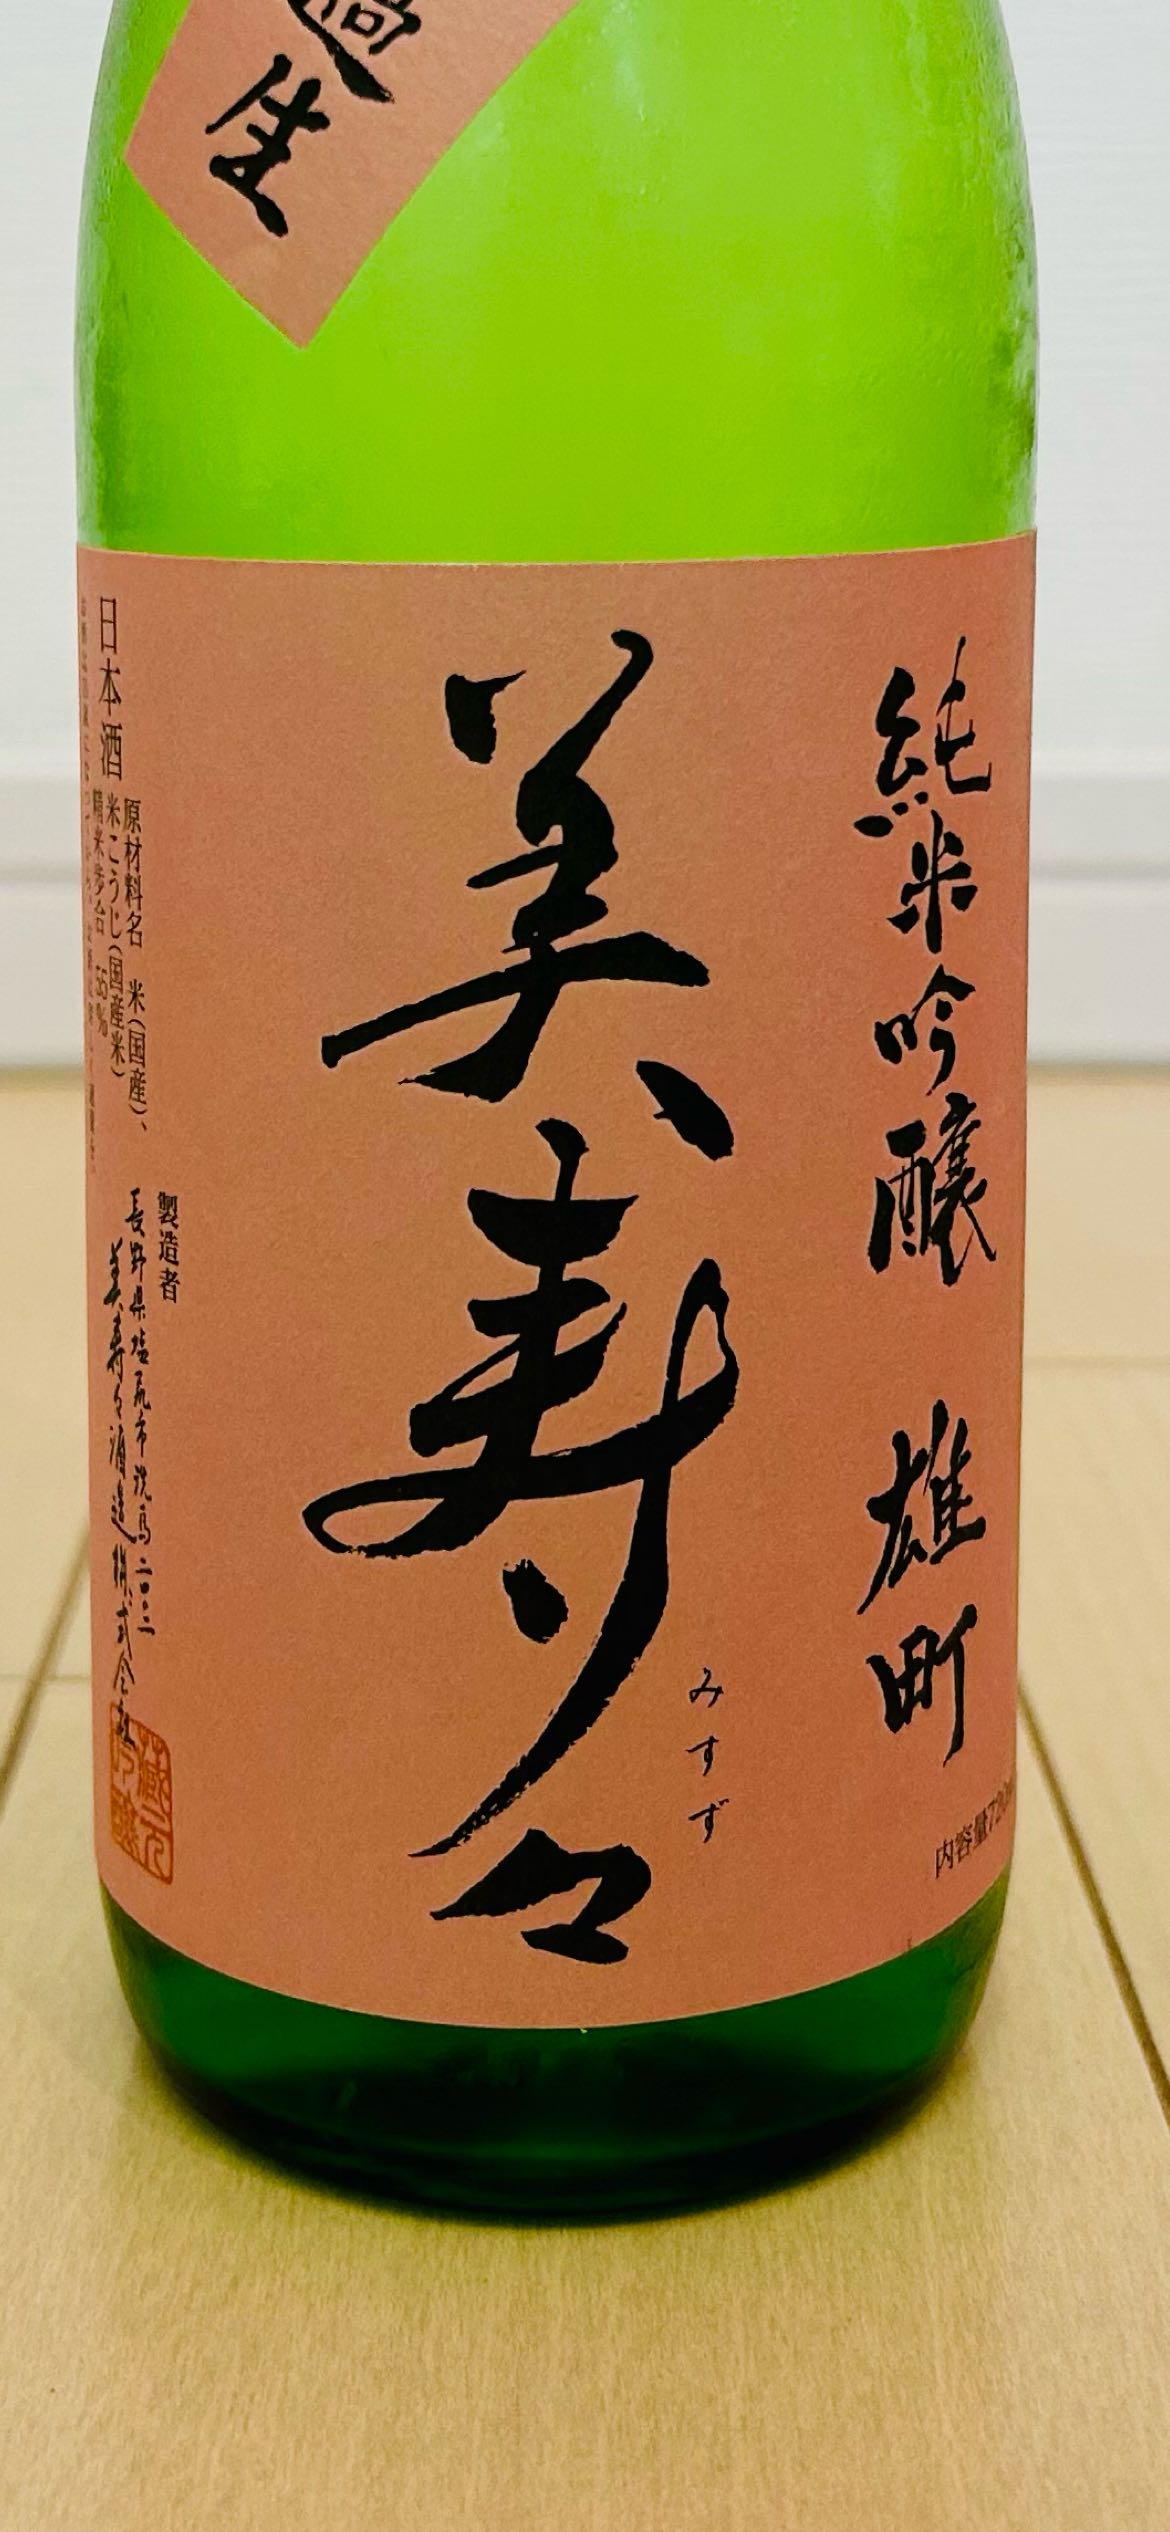 過生
純米吟醸 雄町
美寿々
みすず
内容量720
製造者
長野県塩尻市洗馬二四〇二
美寿々酒造株式会社
蔵元
吟醸
日本酒
原材料名 米(国産)、
米こうじ(国産米)
精米歩合 55%